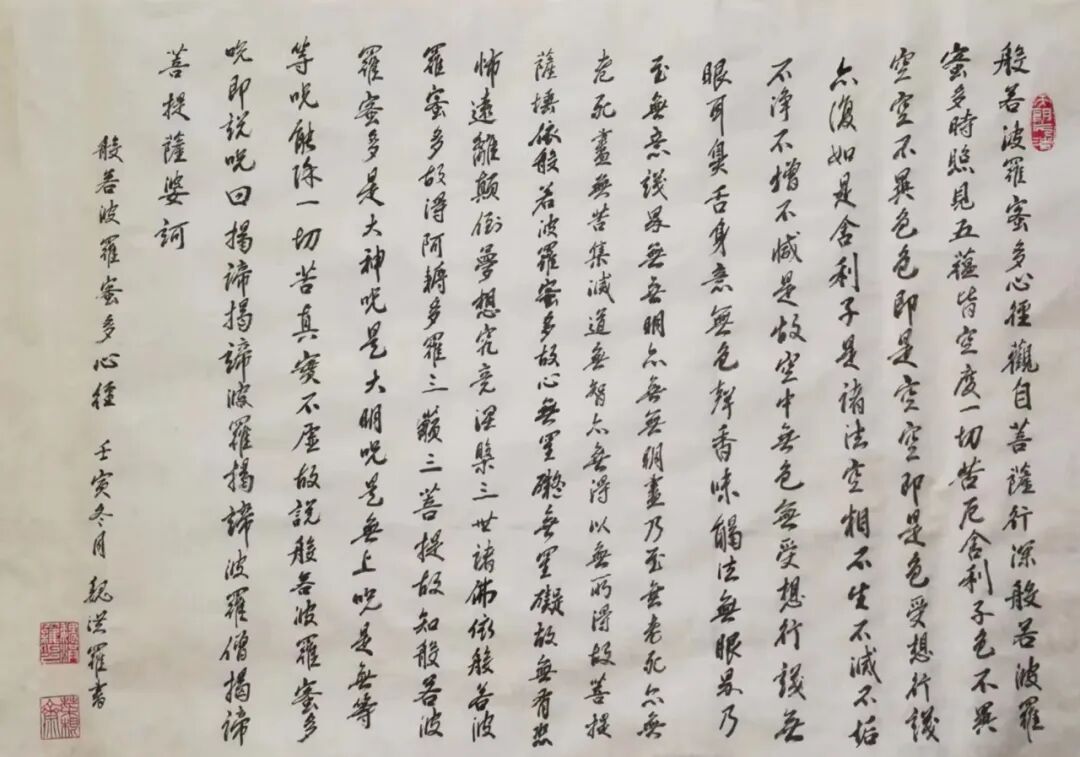 般若波羅蜜多心經觀自菩薩行深般若波羅
蜜多時照見五蘊皆空度一切苦厄舍利子色不異
空空不異色色即是空空即是色受想行識
亦復如是舍利子是諸法空相不生不滅不垢
不淨不增不減是故空中無色無受想行識無
眼耳鼻舌身意無色聲香味觸法無眼界乃
至無意識界無無明亦無無明盡乃至無老死亦無
老死盡無苦集滅道無智亦無得以無所得故菩提
薩埵依般若波羅蜜多故心無罣礙無罣礙故無有恐
怖遠離顛倒夢想究竟涅槃三世諸佛依般若波
羅蜜多故得阿耨多羅三藐三菩提故知般若波
羅蜜多是大神咒是大明咒是無上咒是無等
等咒能除一切苦真實不虛故說般若波羅蜜多
咒即說咒曰揭諦揭諦波羅揭諦波羅僧揭諦
菩提薩婆訶
般若波羅蜜多心經 壬寅冬月 魏洪羅書